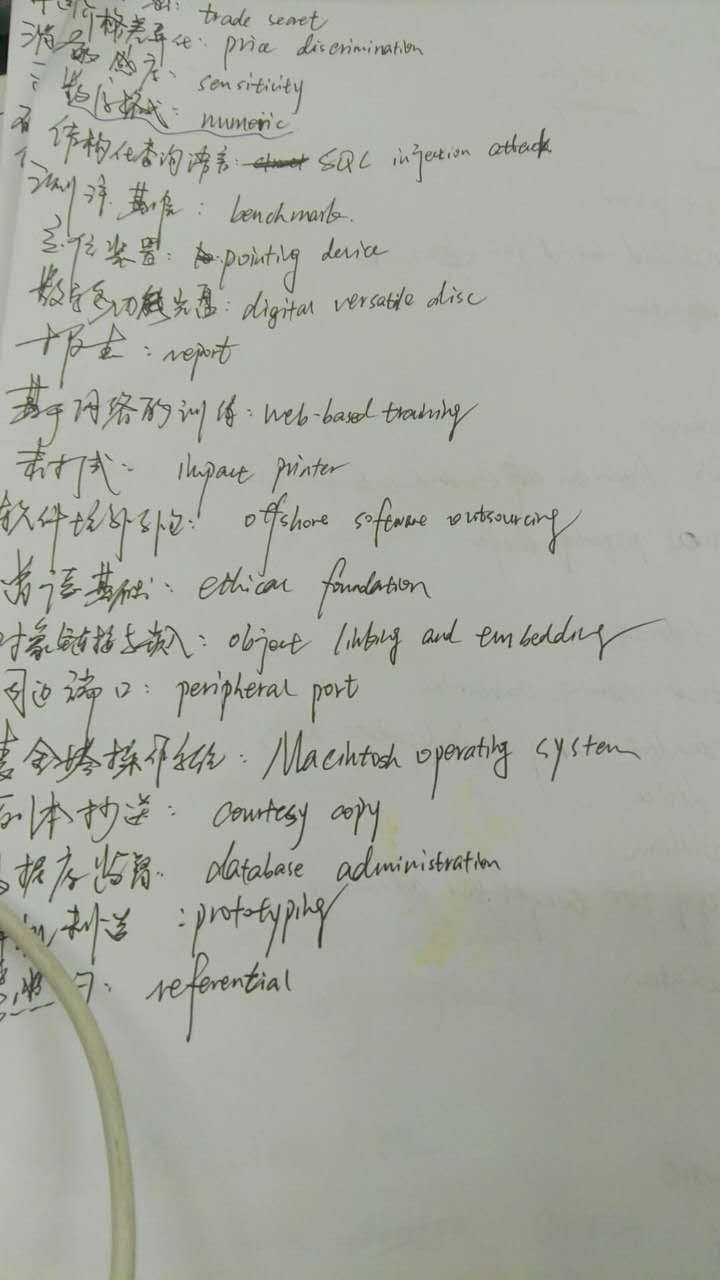 trade secret
价格差异化: price discrimination
敏感度: sensitivity
数字格式: numeric
结构化查询语言: SQL injection attack
基准: benchmark.
定位装置: pointing device
数字多功能光盘: digital versatile disc
: report
基于网络的训练: web-based training
击打式: impact printer
软件境外外包: offshore software outsourcing
道德基础: ethical foundation
对象链接与嵌入: object linking and embedding
周边端口: peripheral port
麦金塔操作系统: Macintosh operating system
副本抄送: courtesy copy
数据库监管: database administration
制造: prototyping
referential